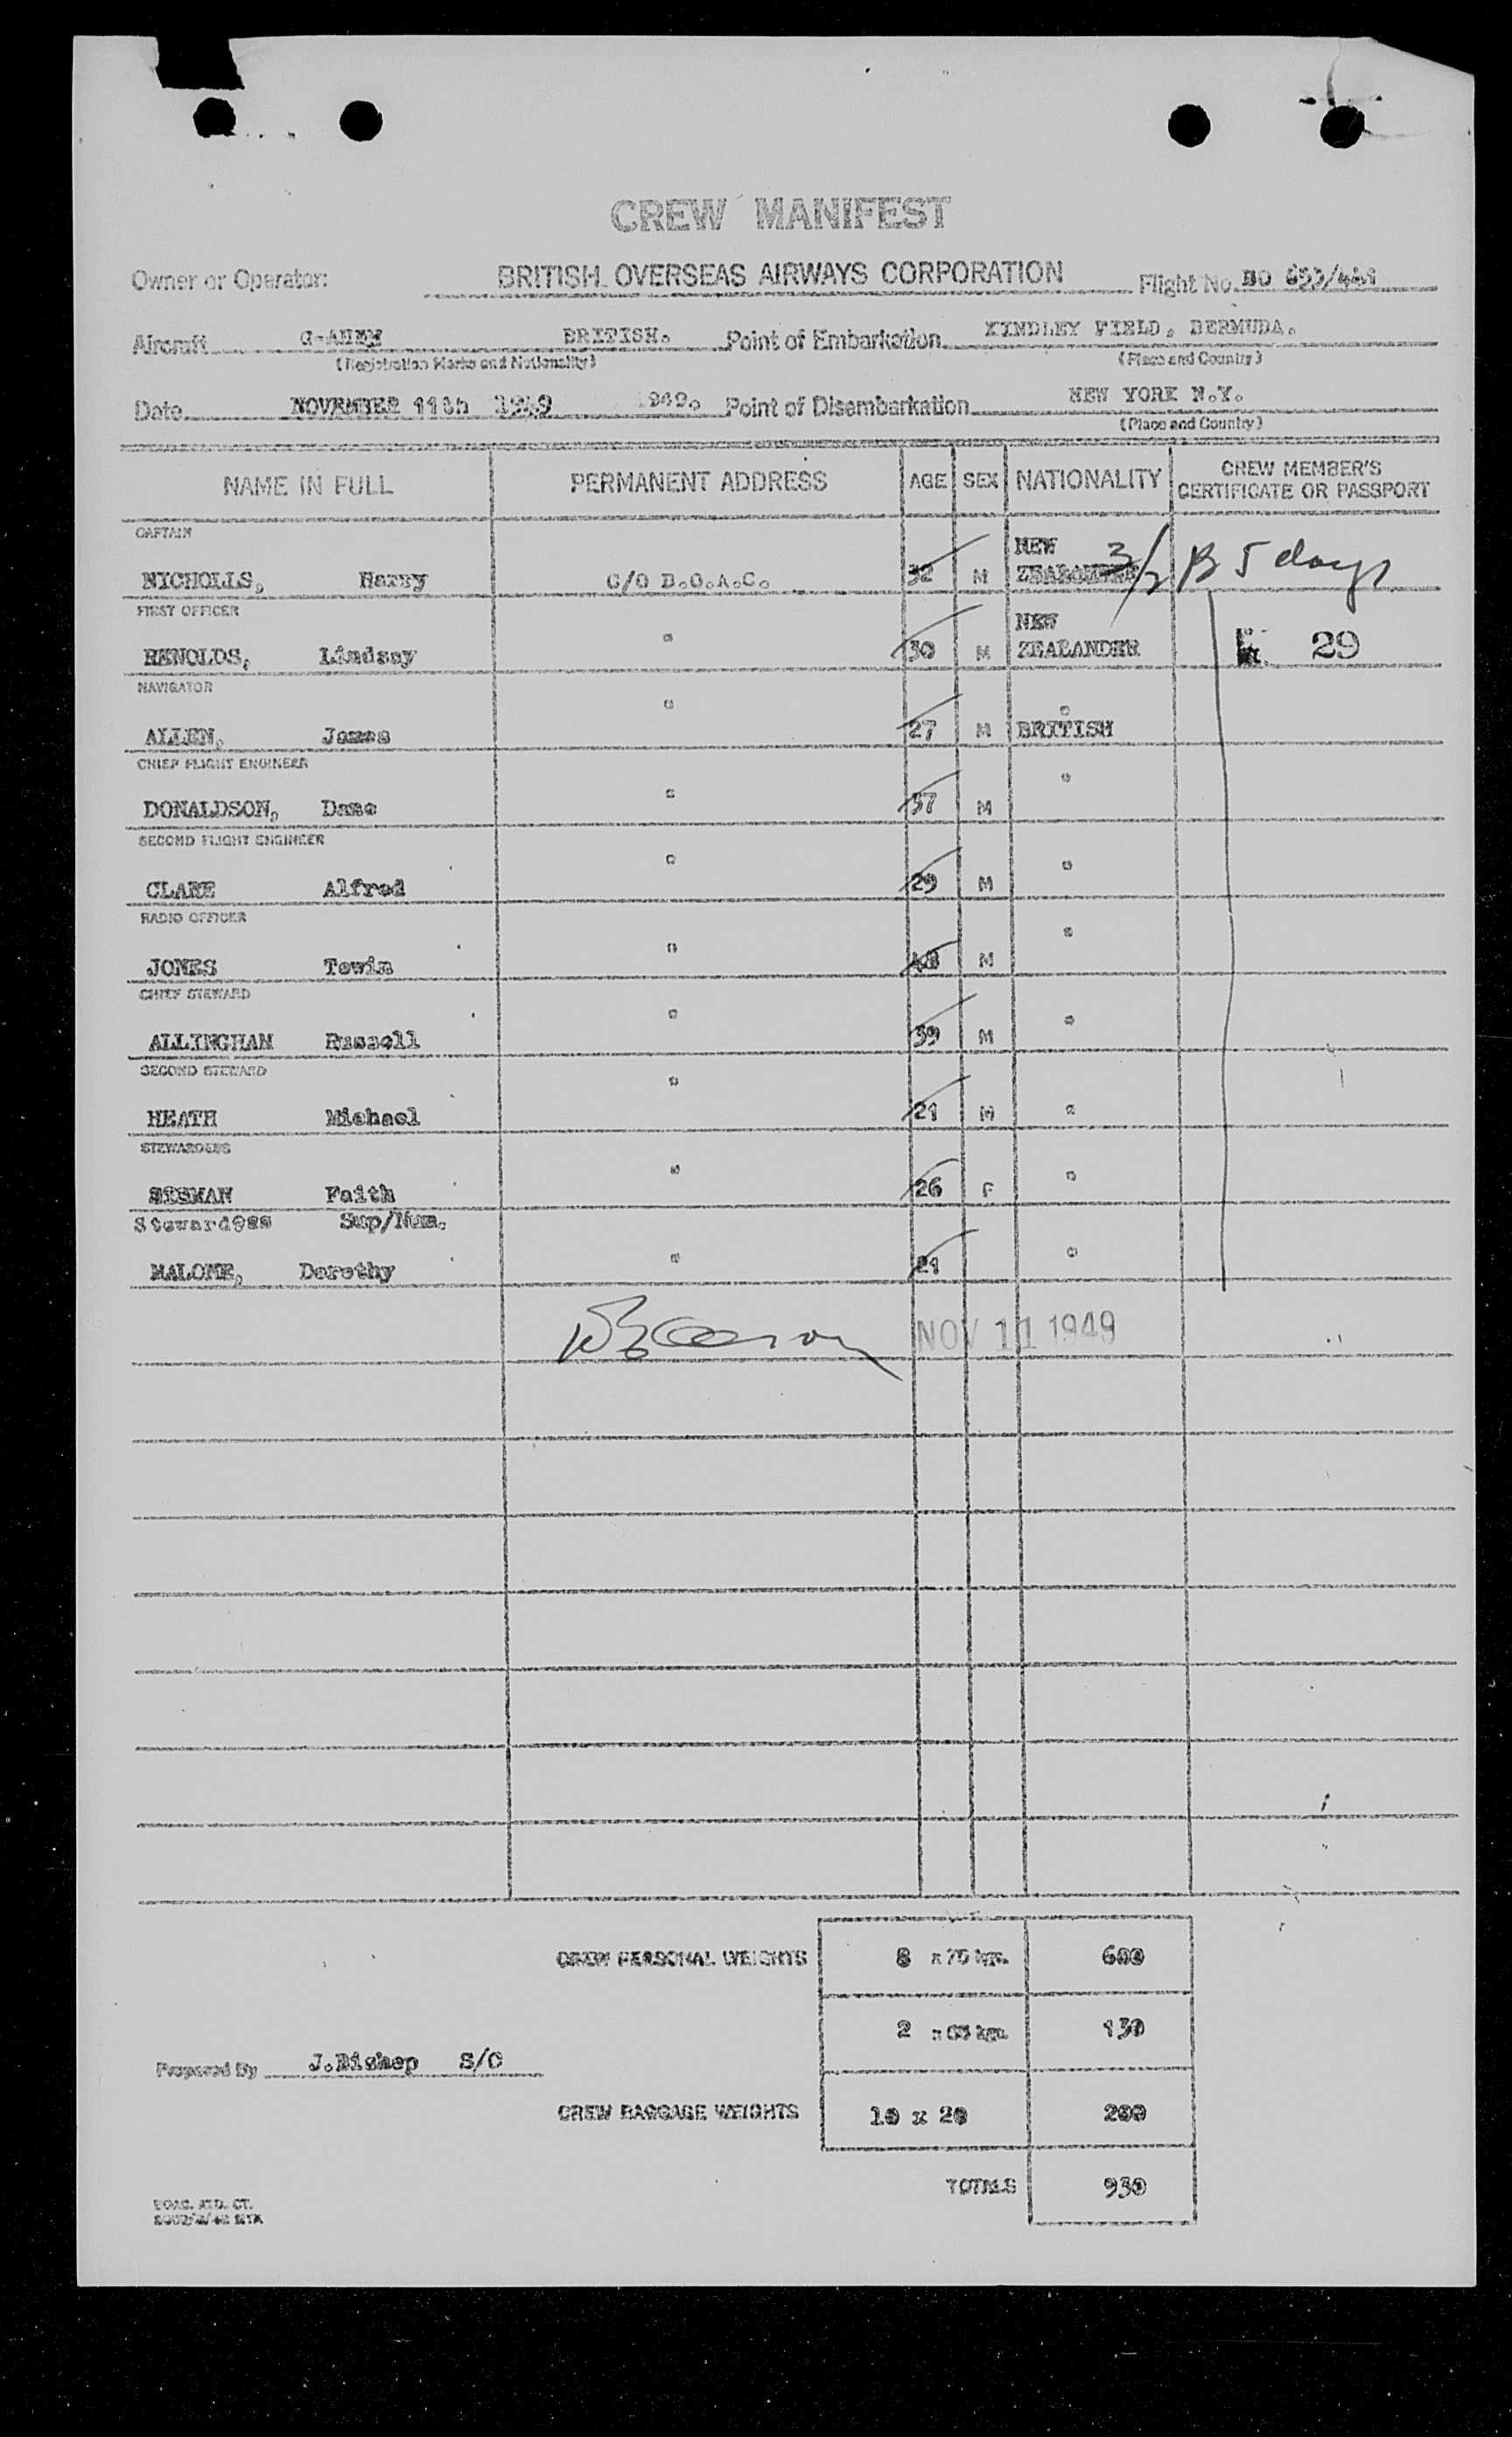 CREW MANIFEST
Owner or Operator: BRITISH OVERSEAS AIRWAYS CORPORATION Flight No. BO
Aircraft BRITISH. Point of Embarkation KINDLEY FIELD, BERMUDA.
(Registration Marks and Nationality) (Place and Country)
Date NOVEMBER 11th 1949 1949. Point of Disembarkation NEW YORK N.Y.
(Place and Country)
NAME IN FULL PERMANENT ADDRESS AGE SEX NATIONALITY CREW MEMBER'S CERTIFICATE OR PASSPORT
CAPTAIN
NICHOLLS, Harry C/O B.O.A.C. 32 M NEW ZEALANDER 3/2 B 5 days
FIRST OFFICER
RENOLDS, Lindsay " 30 M NEW ZEALANDER 29
NAVIGATOR
ALLEN, James " 27 M BRITISH
CHIEF FLIGHT ENGINEER
DONALDSON, " 37 M "
SECOND FLIGHT ENGINEER
CLARE Alfred " 29 M "
RADIO OFFICER
JONES Tewin " M "
CHIEF STEWARD
ALLINGHAM Russell " 39 M "
SECOND STEWARD
HEATH Michael " 21 M "
STEWARDESS
Faith " 26 F "
Stewardess Sup/Num.
MALONE, Dorothy " 21 "
NOV 11 1949
CREW PERSONAL WEIGHTS 8 x 75 kgs. 600
2 x 65 kgs. 130
Prepared By J.Bishop S/C
CREW BAGGAGE WEIGHTS 10 x 20 200
TOTALS 930